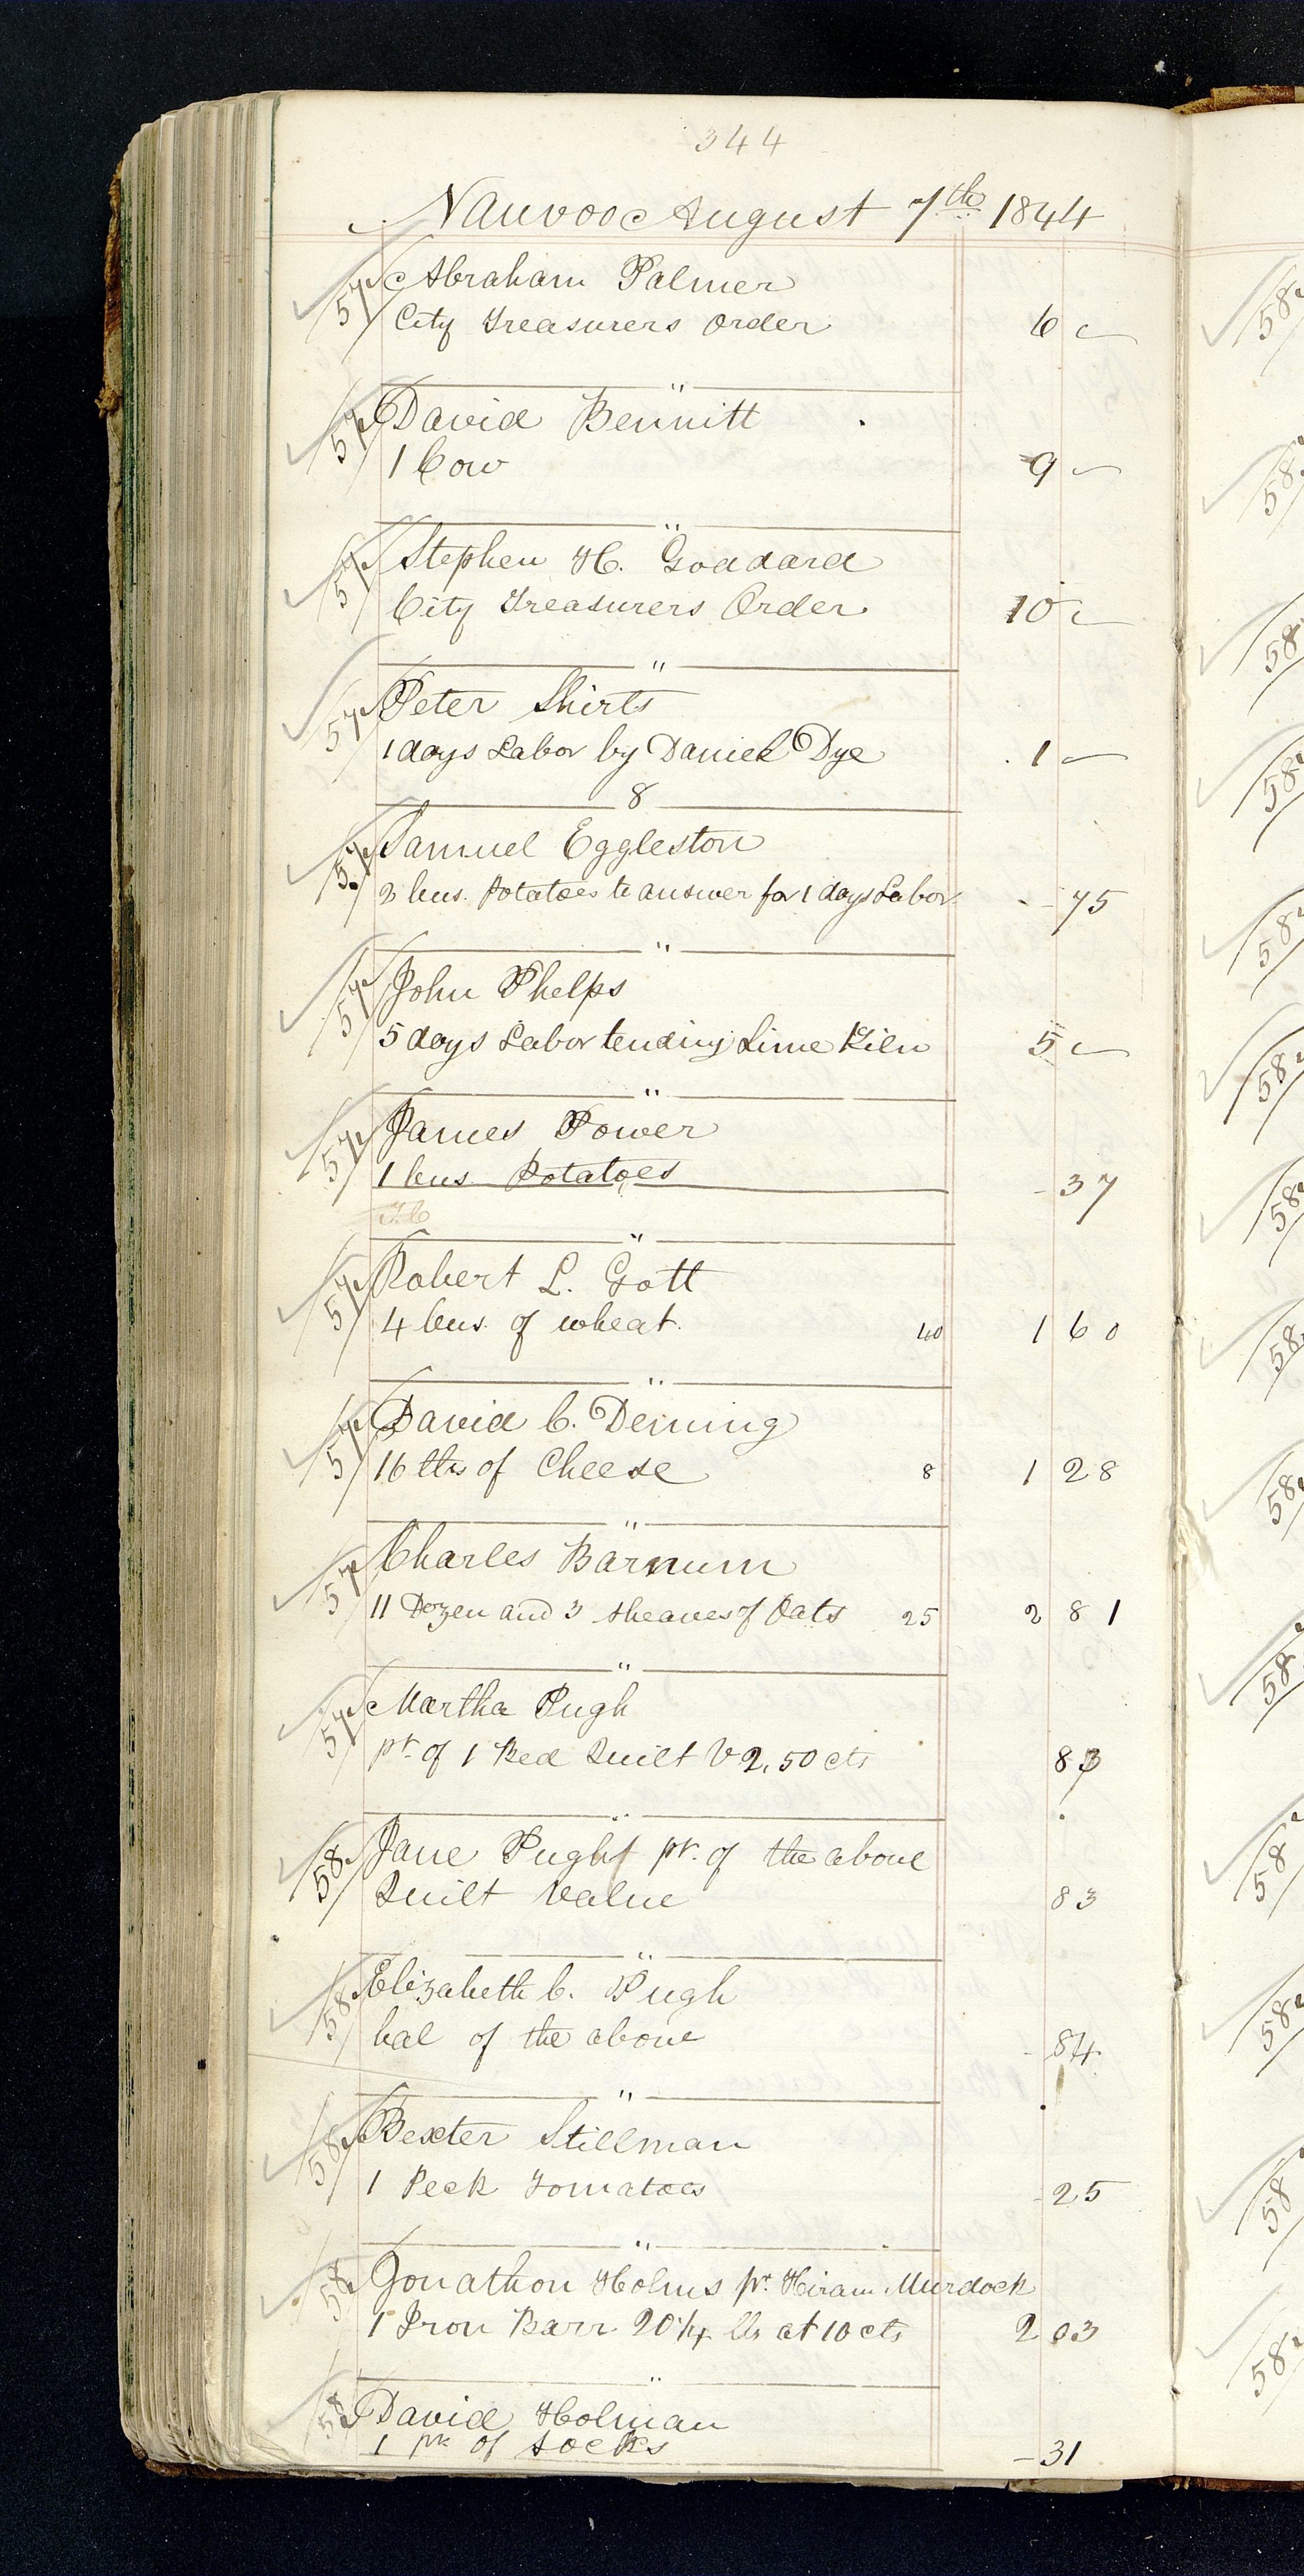 344
Nauvoo August 7th 1844
57 Abraham Palmer
City Treasurers Order 6 -
"
57 David Bennitt
1 Cow 9 -
"
57 Stephen H. Goddard
City Treasurers Order 10 -
"
57 Peter Shirts
1 days Labor by Daniel Dye 1 -
8
57 Samuel Eggleston
2 bus. Potatoes to answer for 1 days Labor - 75
"
57 John Phelps
5 days Labor tending Lime Kiln 5 -
"
57 James Power
1 bus Potatoes - 37
"
57 Robert L. Gott
4 bus. of wheat. 40 1 60
"
57 David C. Deming
16 lbs of Cheese 8 1 28
"
57 Charles Barnum
11 Dozen and 3 sheaves of Oats 25 2 81
"
57 Martha Pugh
pt of 1 Bed Quilt V 2,50 cts 83
"
58 Jane Pugh pt. of the above
Quilt value 83
"
58 Elizabeth C. Pugh
bal of the above - 84
"
58 Bexter Stillman
1 Peck Tomatoes - 25
"
58 Jonathon Holms pr Hiram Murdock
1 Iron Barr 20 1/4 lbs at 10 cts 2 03
"
58 David Holman
1 pr of socks - 31
58
58
58
58
58
58
58
58
58
58
58
58
58
58